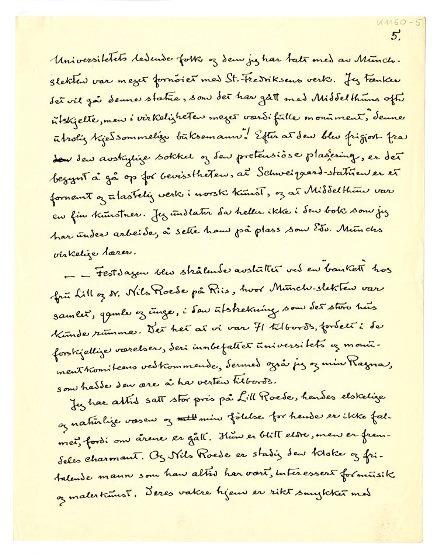 K1160-5
5.
Universitetets ledende folk og dem jeg har talt med av Munch-
slekten var meget fornøiet med St. Fredriksens verk. Jeg tænker
det vil gå denne statue, som det har gått med Middelthuns ofte
utskjelte, men i virkeligheten meget værdifulle monument, "denne
utrolig kjedsommelige buksemann"! Efterat den blev frigjort fra
den avskylige sokkel og den pretensiöse plasering, er det
begynt å gå op for bevisstheten, at Schweigaard-statuen er et
fornemt og ulastelig verk i norsk kunst, og at Middelthun var
en fin kunstner. Jeg undlater da heller ikke i den bok som jeg
har under arbeide, å sette ham på plass som Edv. Munchs
virkelige lærer.
— — Festdagen blev strålende avsluttet ved en "bankett" hos
fru Lill og dr. Nils Roede på Riis, hvor Munch-slekten var
samlet, gamle og unge, i den utstrekning som det store hus
kunde rumme. Det het at vi var 71 tilbords, fordelt i de
forskjellige værelser, deri innbefattet universitets og monu-
mentkomiteens vedkommende, dermed også jeg og min Ragna,
som hadde den ære å ha verten tilbords.
Jeg har altid satt stor pris på Lill Roede, hendes elskelige
og naturlige væsen og min følelse for hende er ikke fal-
met, fordi om årene er gått. Hun er blitt eldre, men er frem-
deles charmant. Og Nils Roede er stadig den kloke og fri-
talende mann som han altid har vært, interessert for musik
og malerkunst. Deres vakre hjem er rikt smykket med